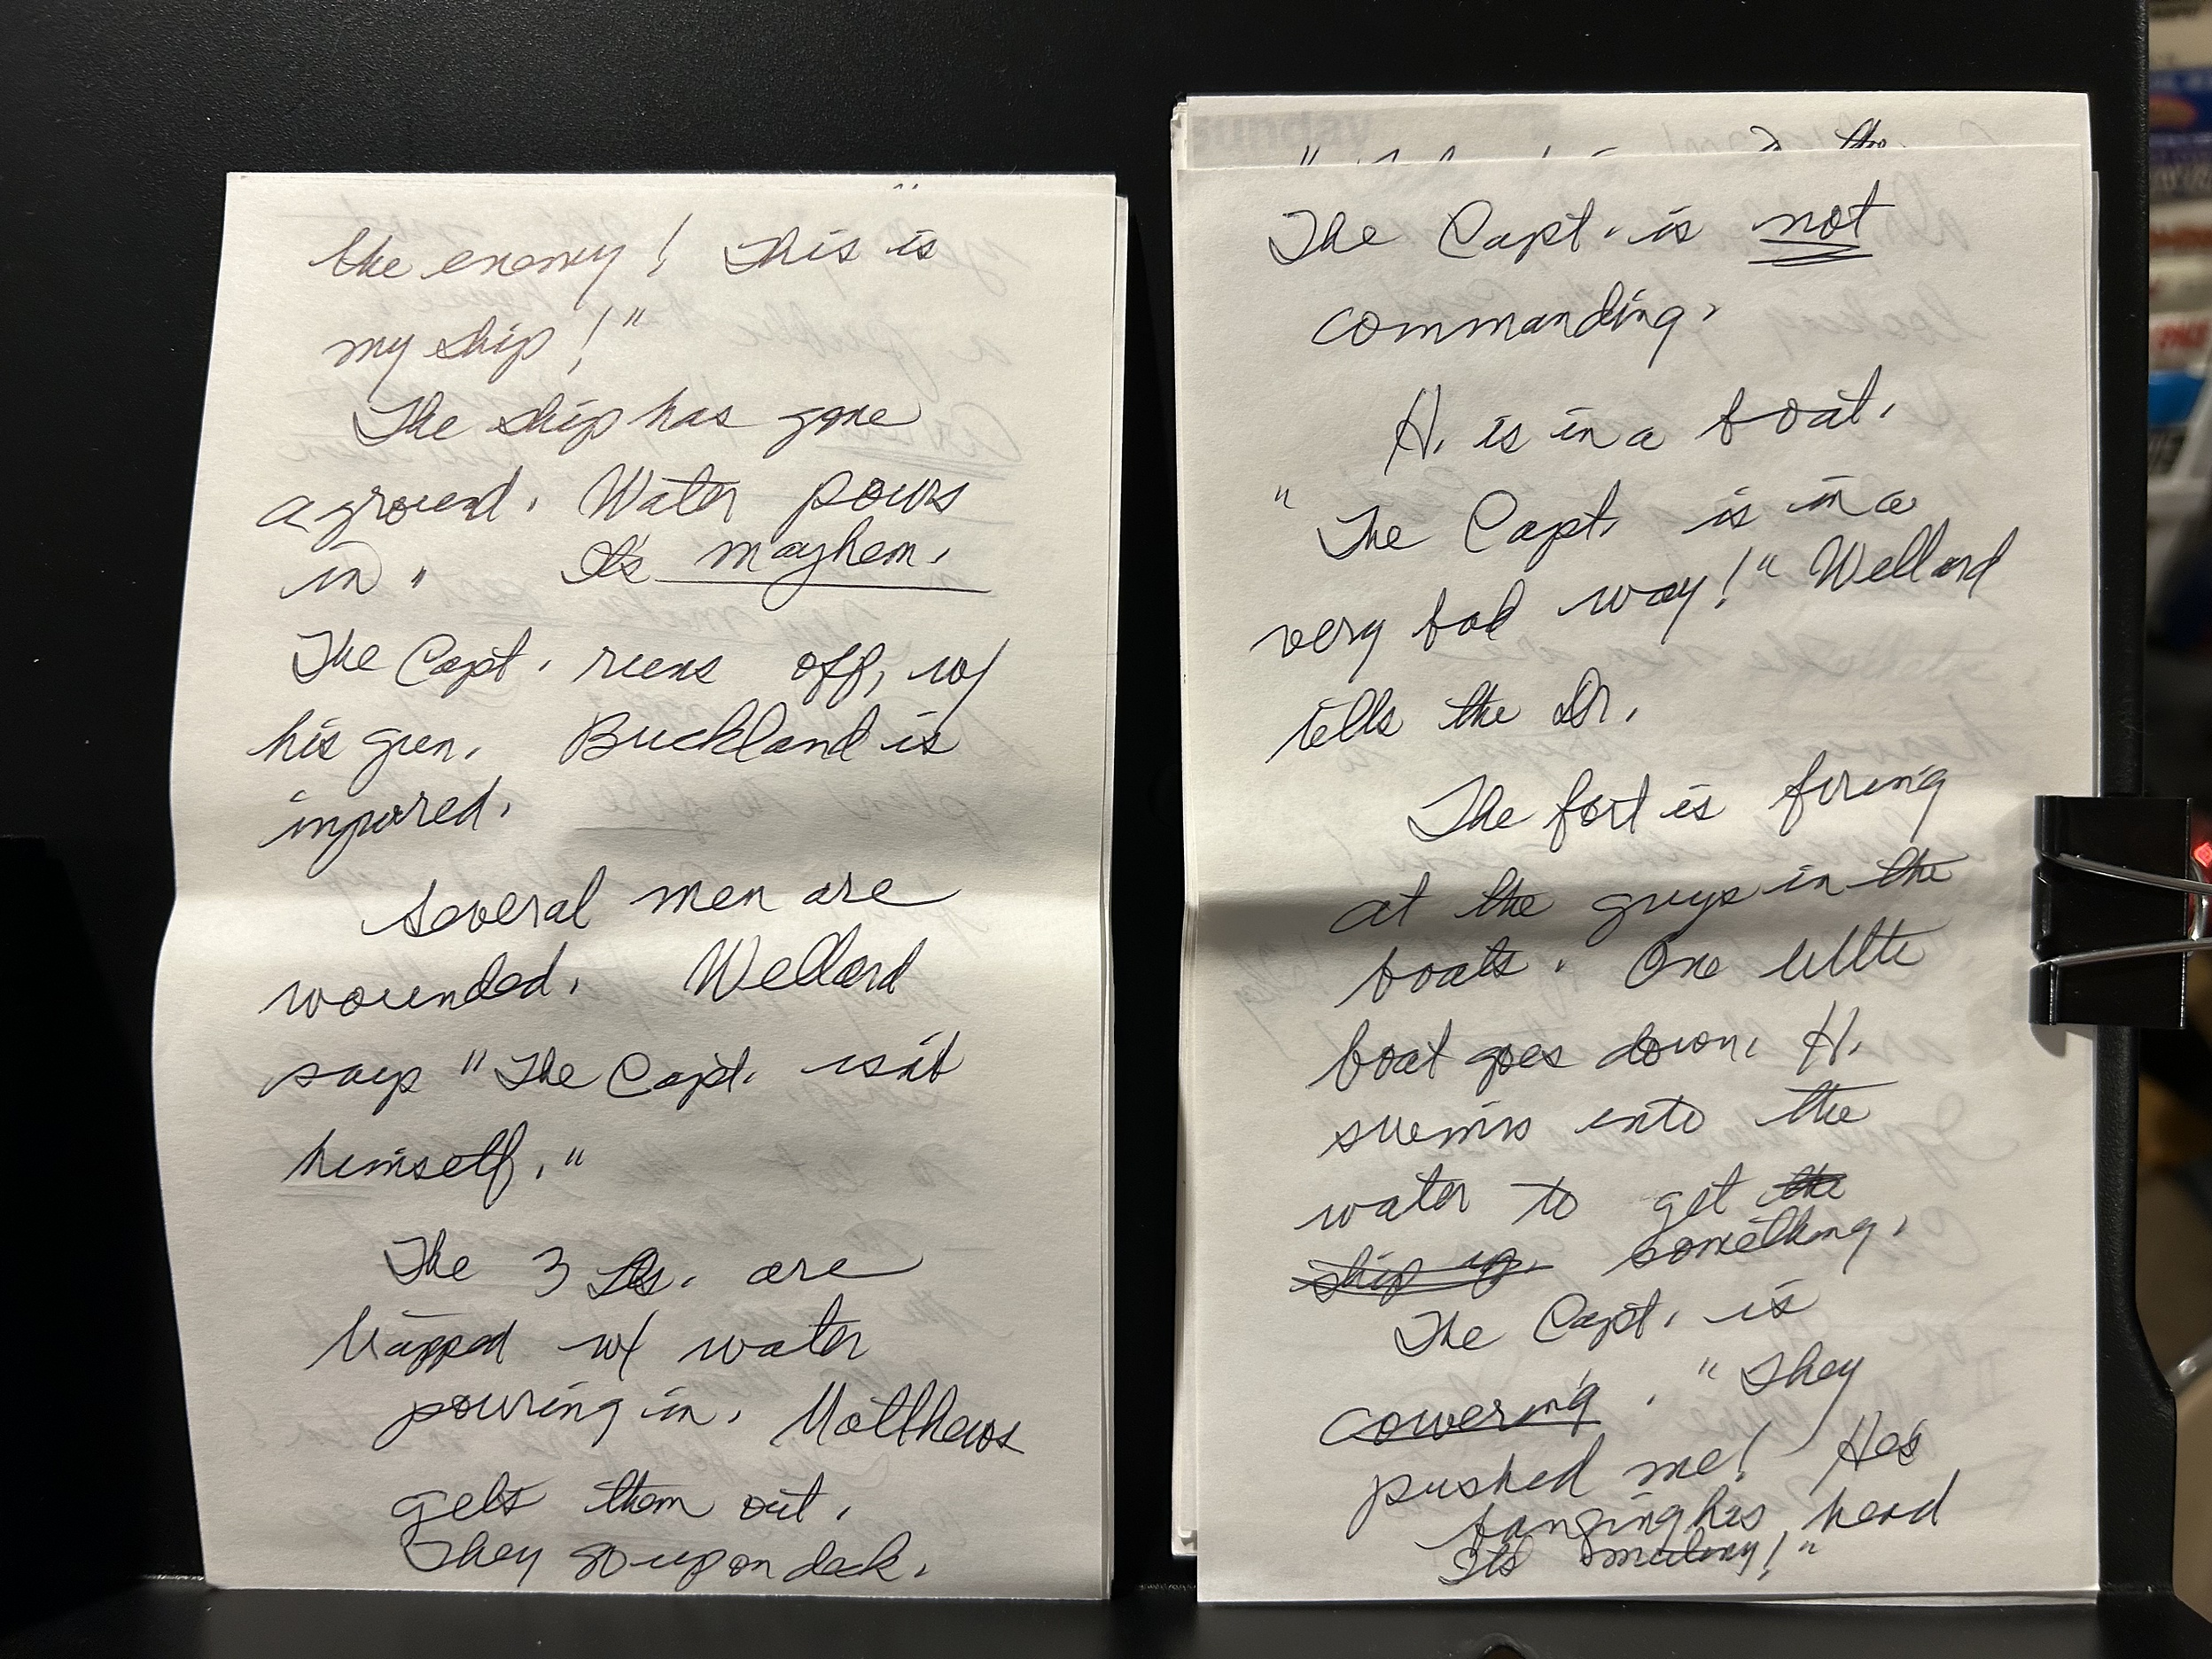 the enemy! This is
my ship!"
The ship has gone
aground. Water pours
in. It's mayhem.
The Capt. runs off, w/
his gun. Buckland is
injured.
Several men are
wounded. Wellard
says "The Capt. isn't
himself."
The 3 Lts. are
trapped w/ water
pouring in. Matthews
gets them out.
They go up on deck.
sunday
the
The Capt. is not
commanding.
H. is in a boat.
"The Capt. is in a
very bad way!" Wellard
tells the Dr.
The fort is firing
at the guys in the
boats. One little
boat goes down. H.
swims into the
water to get the
ship up. something.
The Capt. is
cowering. "They
pushed me! He's
banging his head
Its mutiny!"